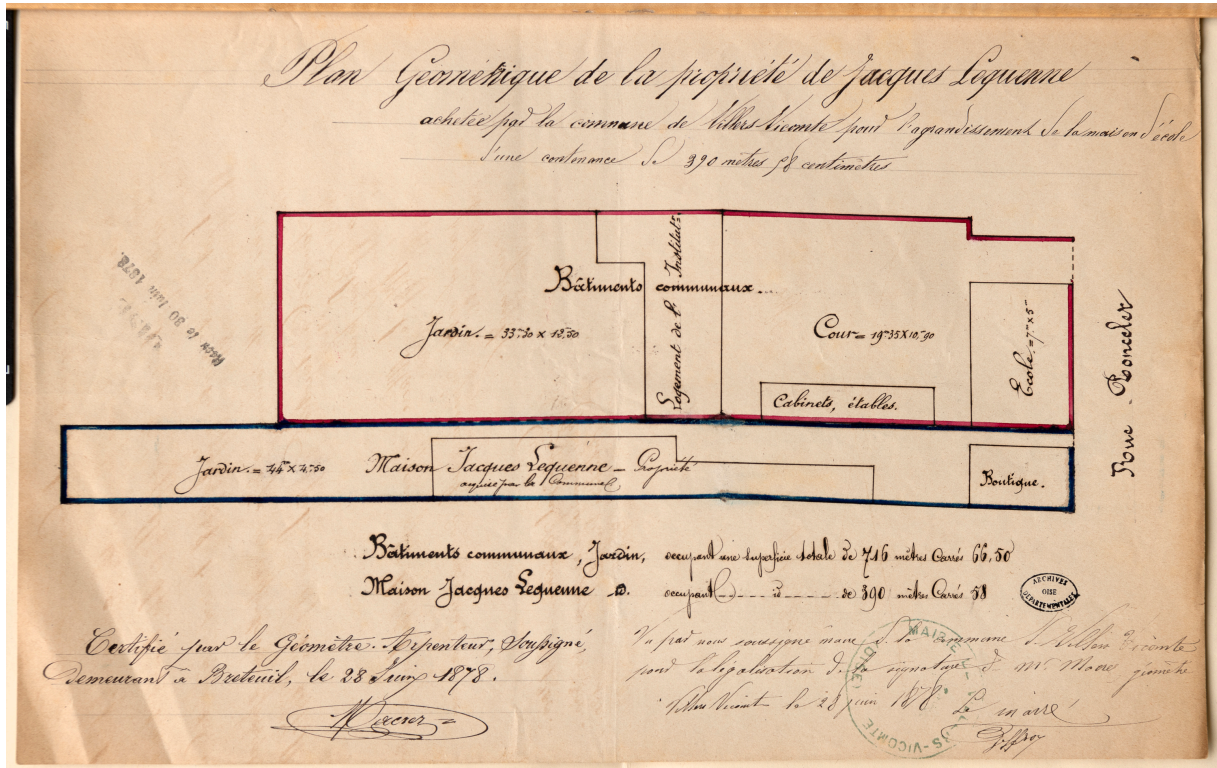 Plan Géométrique de la propriété de Jacques Lequenne
achetée par la commune de Villers-Vicomte pour l'agrandissement de la maison d'école
d'une contenance de 390 mètres 58 centimètres
Reçu le 30 Juin 1878.
Bâtiments communaux.
Logement de l'Institut.
Jardin. = 33m30 x 13,50
Cour = 19m35 x 10,90
Ecole = 7m x 5m
Cabinets, étables.
Rue
Jardin. = 44m x 4m50
Maison Jacques Lequenne _ Propriété
acquise par la Commune
Boutique.
Bâtiments communaux, Jardin, occupant une superficie totale de 716 mètres Carrés 66,50
Maison Jacques Lequenne D. occupant id de 390 mètres Carrés 58
ARCHIVES
OISE
DÉPARTEMENTALES
Certifié par le Géomètre. Arpenteur, Soussigné,
Demeurant à Breteuil, le 28 Juin 1878.
Vu par nous soussigné maire de la commune de Villers Vicomte
pour la légalisation de la signature de Mr géomètre
Villers Vicomte le 28 juin 1878 Le maire
MAIRIE DE VILLERS-VICOMTE (OISE)